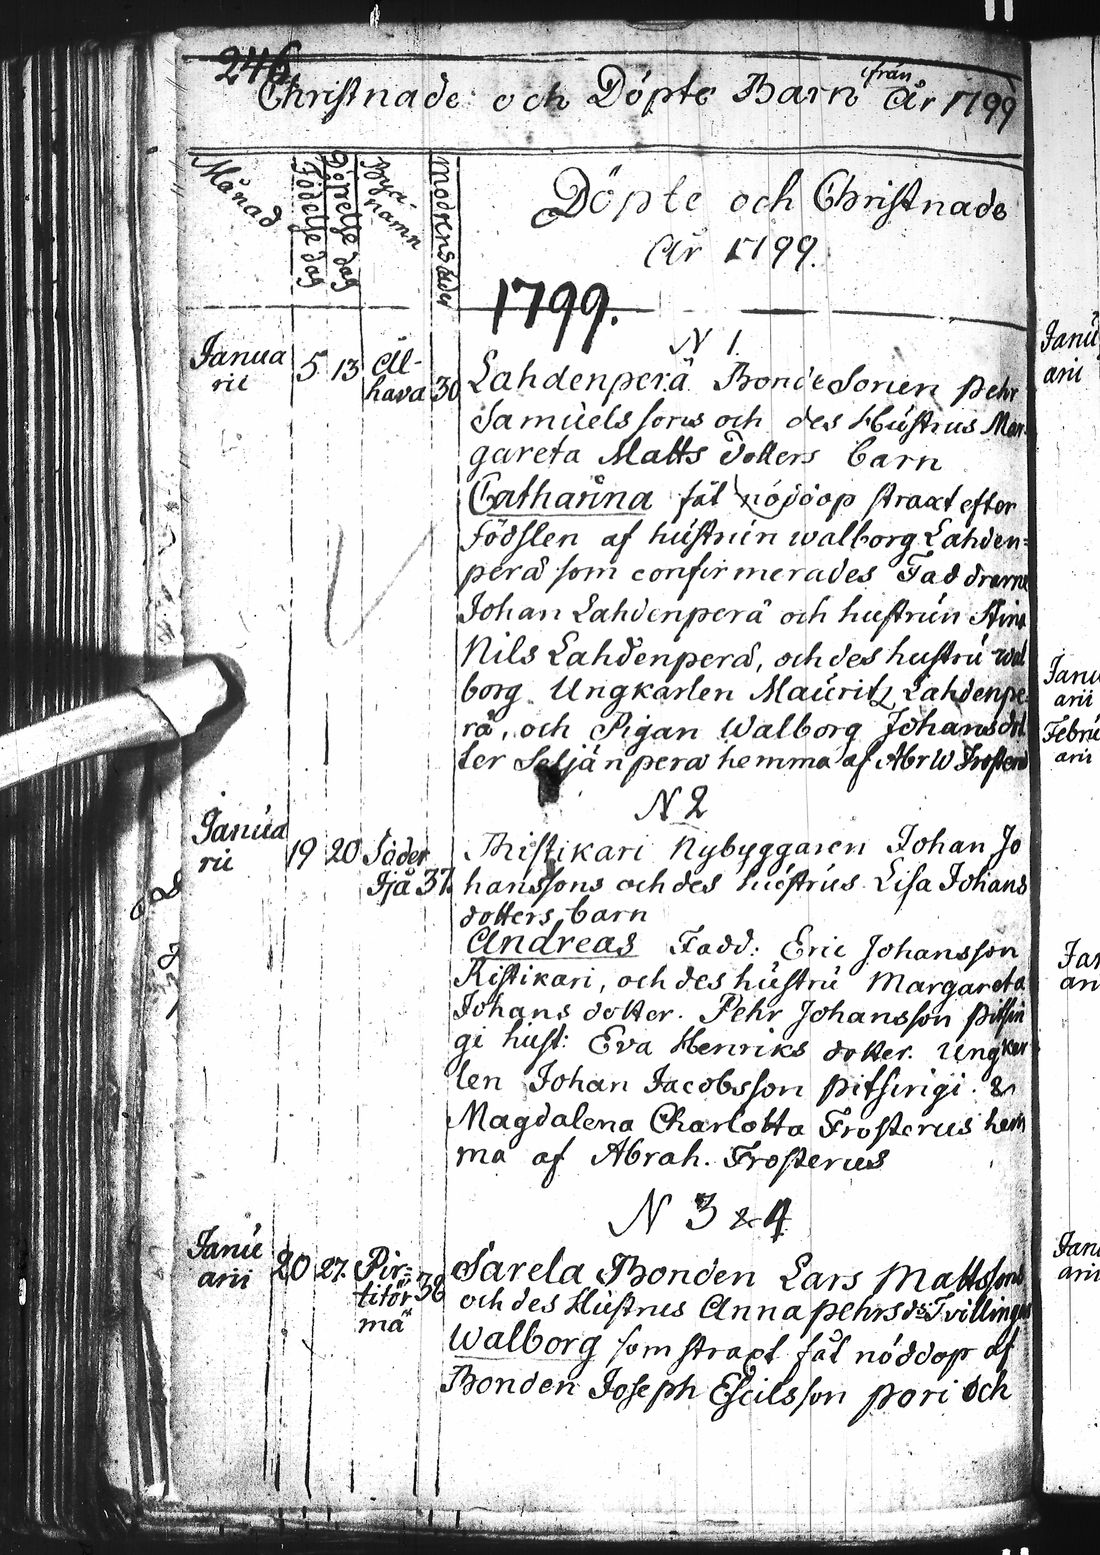 246.
Christnade och Döpte Barn ifrån År 1799
Månad
Födelse dag
Döpelse dag
Byanamn
Modrens ålder
Döpte och Christnade
År 1799.
1799.
N 1.
Januarii 5 13 Alhava 30
Lahdenperä Bonde Sonen Pehr
Samuelssons och des Hústrus Mar-
gareta Matts Dotters barn
Catharina fåt nöddop straxt efter
Födslen af hústrún Walborg Lahden=
perä som confirmerades Faddrarne
Johan Lahdenperä och hustrún Stina
Nils Lahdenperä, och des hustrú Wal
borg Ungkarlen Mauritz Lahdenpe
rä, och Pigan Walborg Johansdot
ter Seljänperä hemma af Abr W Frosterus
N 2
Januarii 19 20 Söder Ijå 37
Ristikari Nybyggaren Johan Jo
hanssons och des hústrús Lisa Johans
dotters barn
Andreas Fadd: Eric Johansson
Ristikari, och des hústrú Margareta
Johans dotter. Pehr Johansson Pitsin
gi húst: Eva Henriks dotter. Ungkar
len Johan Jacobsson Pitsingi &
Magdalena Charlotta Frosterus hem
ma af Abrah. Frosterus
N 3 & 4
Janúarii 20 27. Pirtitörmä 36
Sarela Bonden Lars Mattssons
och des Hústrus Anna Pehrsds Tvillingar
Walborg som straxt fåt nöddop af
Bonden Joseph Escilsson Pori och
Janúarii
Januarii
Februarii
Januarii
Januarii